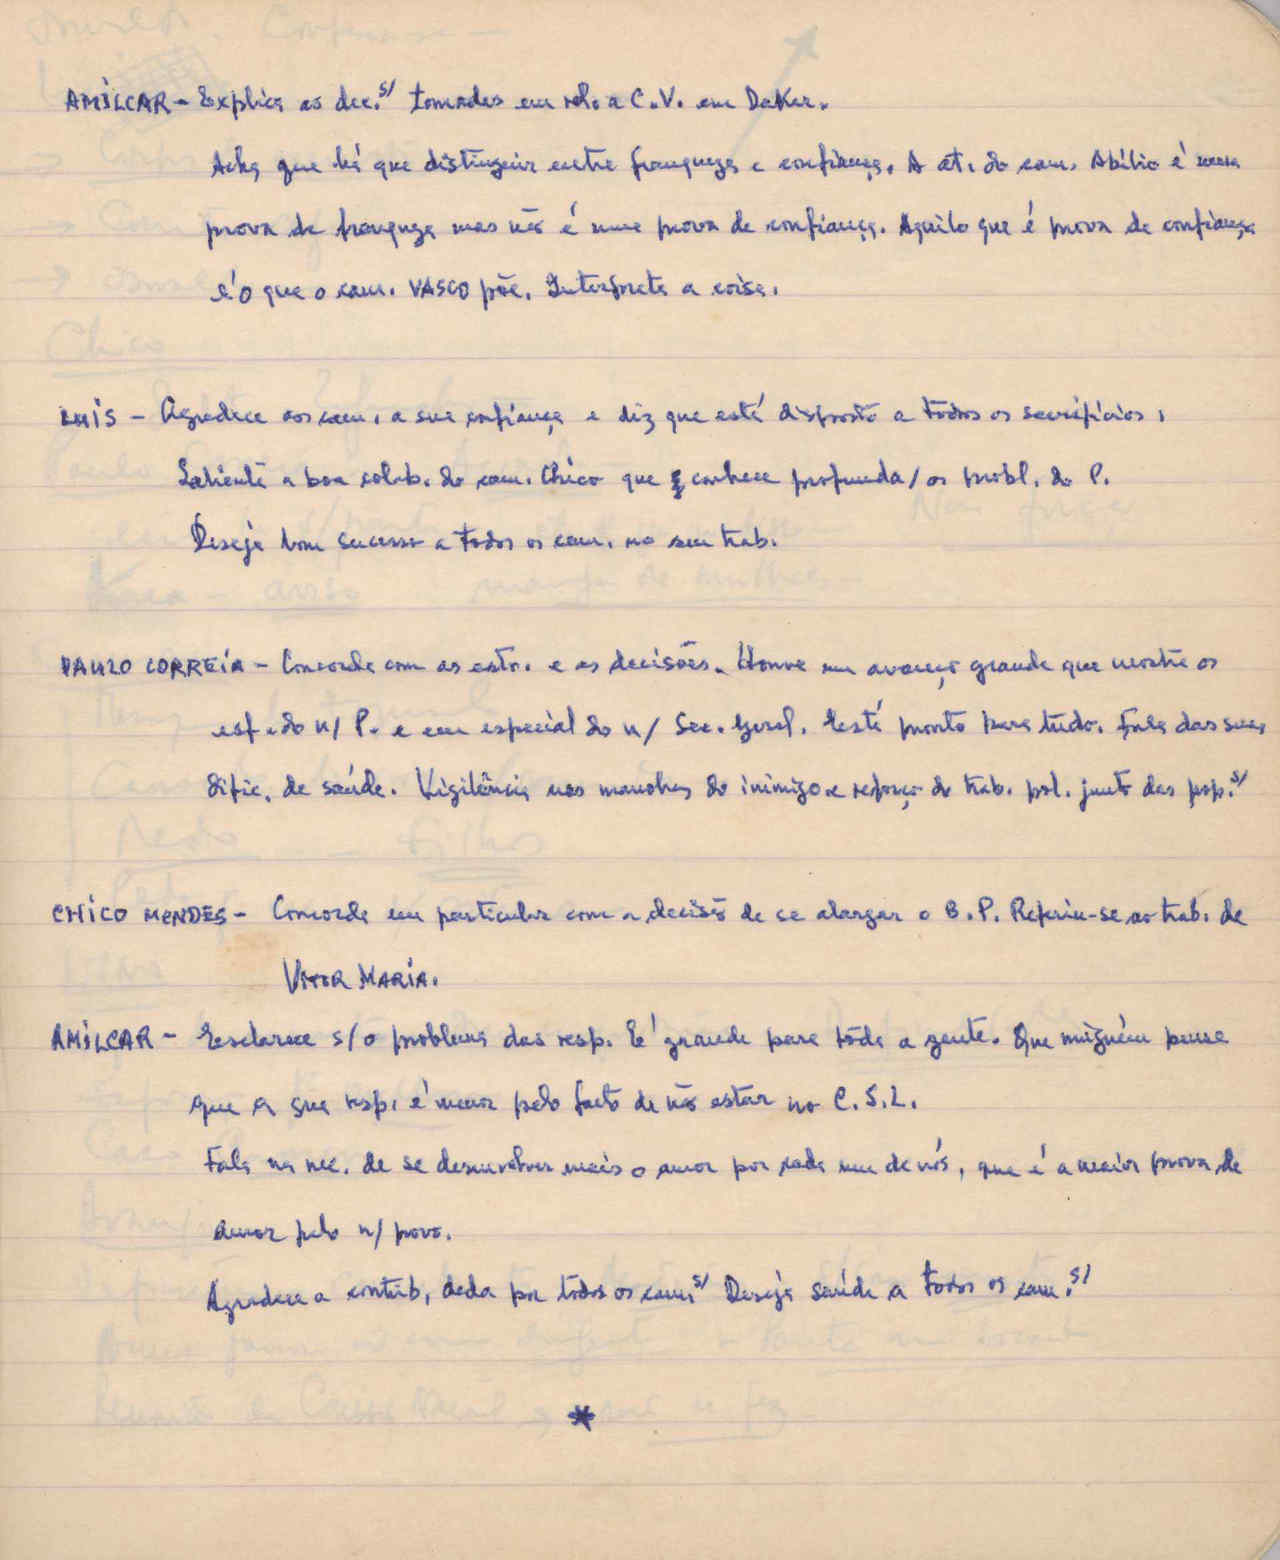 AMÍLCAR - Explica as dec.s/ tomadas em rel. a C.V. em Daker.
Acha que há que distinguir entre franqueza e confiança. A at. do cam. Abílio é uma
prova de franqueza mas não é uma prova de confiança. Aquilo que é prova de confiança
é o que o cam. VASCO põe. Interpreta a coisa.
LUÍS - Agradece aos cam. a sua confiança e diz que está disposto a todos os sacrifícios.
Salienta a boa colab. do cam. Chico que conhece profunda/ os probl. do P.
Deseja bom sucesso a todos os cam. no seu trab.
PAULO CORREIA - Concorda com as estr. e as decisões. Houve um avanço grande que mostra os
esf. do n/ P. e em especial do n/ Sec. Geral. Está pronto para tudo. Fala das suas
dific. de saúde. Vigilância nas manobras do inimigo e reforço do trab. pol. junto das pop.s/
CHICO MENDES - Concorda em particular com a decisão de se alargar o B.P. Referiu-se ao trab. de
VITOR MARIA.
AMÍLCAR - Esclarece s/ o problema das resp. É grande para tôda a gente. Que ninguém pense
que a sua resp. é menor pelo facto de não estar no C.S.L.
Fala na nec. de se desenvolver mais o amor por cada um de nós, que é a maior prova de
amor pelo n/ povo.
Agradece a contrib. dada por todos os cam.s/ Deseja saúde a todos os cam.s/
*